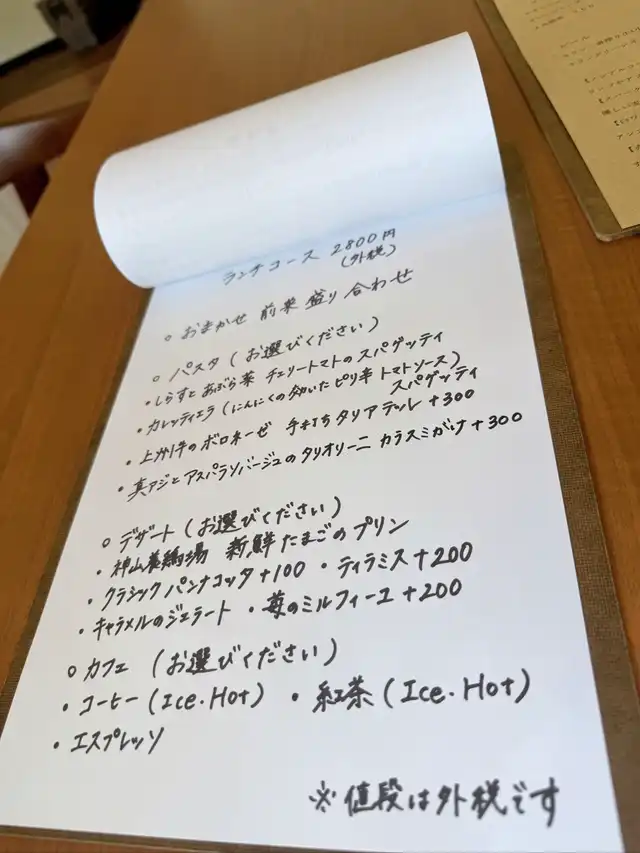 ランチコース 2800円
(外税)
○ おまかせ 前菜 盛り合わせ
○ パスタ (お選びください)
・しらすと あぶら菜 チェリートマトの スパゲッティ
・カレッティエラ (にんにくの効いた ピリ辛 トマトソース)
スパゲッティ
・上州牛の ボロネーゼ 手打ち タリアテッレ +300
・真アジと アスパラソバージュの タリオリーニ カラスミがけ +300
○ デザート (お選びください)
・神山養鶏場 新鮮 たまごの プリン
・クラシック パンナコッタ +100 ・ティラミス +200
・キャラメルの ジェラート ・苺の ミルフィーユ +200
○ カフェ (お選びください)
・コーヒー (Ice・Hot) ・紅茶 (Ice・Hot)
・エスプレッソ
※ 値段は 外税です